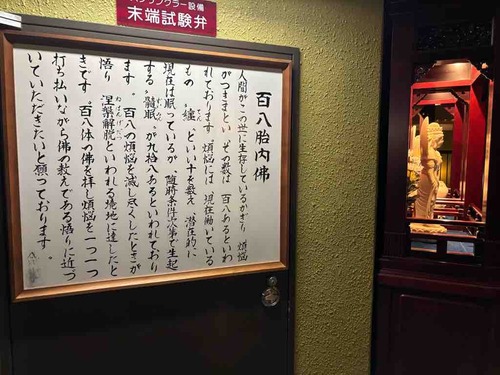 スプリンクラー設備
末端試験弁
百八胎内佛
人間がこの世に生存しているかぎり 煩悩
がつきまとい、その数は 百八あるといわ
れております。煩悩には 現在働いている
もの「纏」といい十を数え 潜在的に
現在は眠っているが 随時条件次第で生起
する「随眠」が九拾八あるといわれており
ます。百八の煩悩を滅し尽くしたときが
悟り 涅槃解脱といわれる境地に達したと
きです。百八体の佛を拝し煩悩を一つ一つ
打ち払いながら佛の教えである悟りに近づ
いていただきたいと願っております。